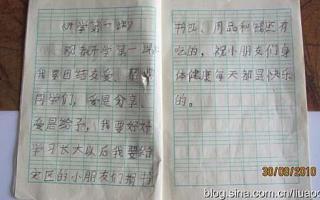 《开学第一课》
观看开学第一课
我要团结友爱、帮助
同学们，爱是分享、
爱是给予，我要好好
学习长大以后我要给
灾区的小朋友们捐书
用品和
吃的，祝小朋友们身
体健康每天都是快乐
的。
30/08/2010
blog.sina.com.cn/liuaoc